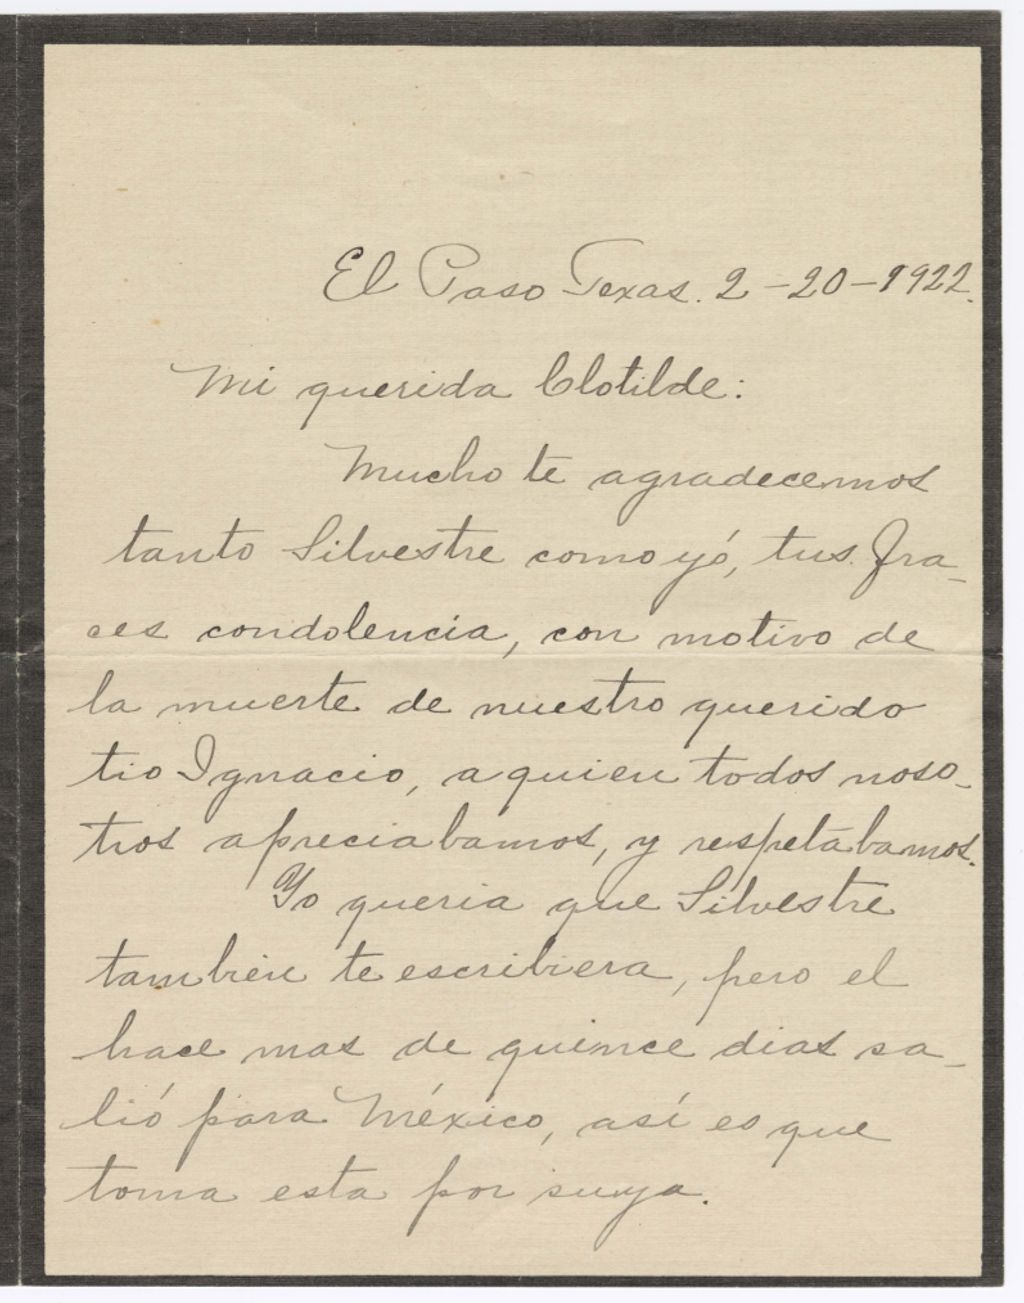 El Paso Texas. 2-20-1922.
Mi querida Clotilde:
Mucho te agradecemos
tanto Silvestre como yó, tus fra-
ces condolencia, con motivo de
la muerte de nuestro querido
tio Ignacio, a quien todos noso-
tros apreciabamos, y respetábamos.
Yo queria que Silvestre
tambien te escribiera, pero el
hace mas de quince dias sa-
lió para México, así es que
toma esta por suya.